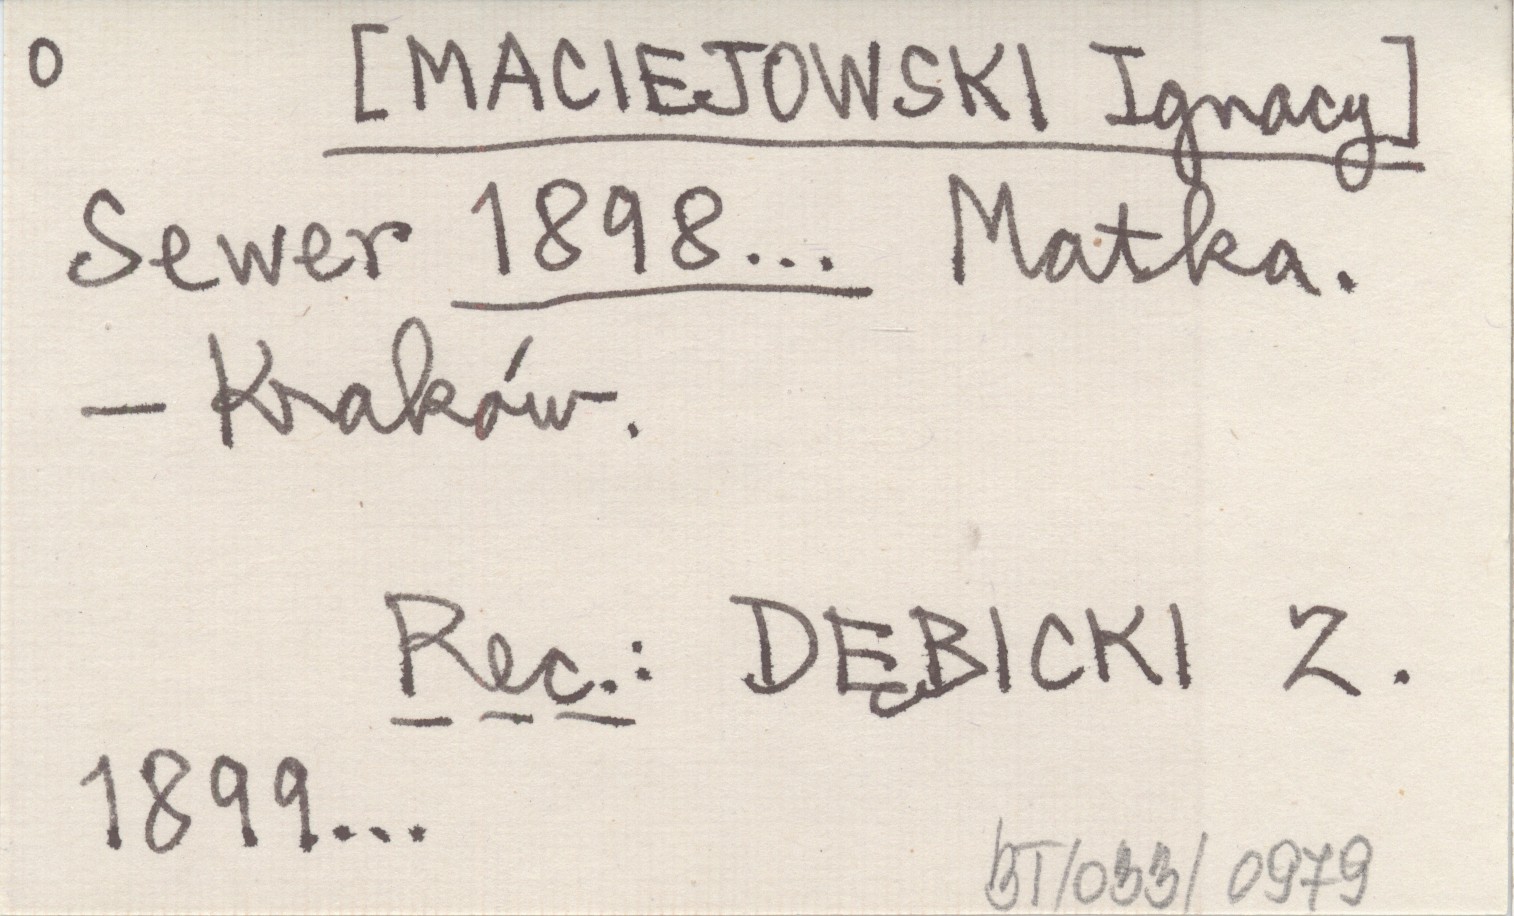 o [MACIEJOWSKI Ignacy]
Sewer 1898... Matka.
– Kraków.
Rec.: DĘBICKI Z.
1899...
BT/033/0979